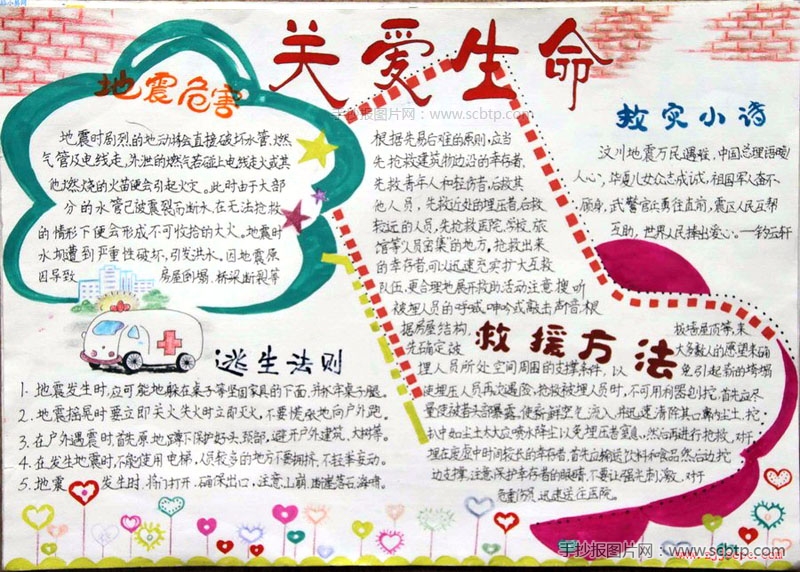 关爱生命
手抄报图片网 - www.scbtp.com
地震危害
地震时剧烈的地动将会直接破坏水管、燃
气管及电线走，外泄的燃气若碰上电线走火或其
他燃烧的火苗便会引起火灾。此时由于大部
分的水管已被震裂而断水，在无法抢救
的情形下便会形成不可收拾的大火。地震时
水坝遭到严重性破坏，引发洪水。因地震原
因导致 房屋倒塌，桥梁断裂等
逃生法则
1、地震发生时，应可能地躲在桌子等坚固家具的下面，并抓牢桌子腿。
2、地震摇晃时要立即关火失火时立即灭火，不要慌张地向户外跑。
3、在户外遇震时首先原地蹲下保护好头、颈部，避开户外建筑、大树等。
4、在发生地震时，不能使用电梯，人员较多的地方不要拥挤，不轻率妄动。
5、地震 发生时，将门打开，确保出口，注意山崩、断崖落石、海啸。
根据先易后难的原则，应当
先抢救建筑物边沿的幸存者，
先救青年人和轻伤者，后救其
他人员，先救近处的埋压者，后救
较远的人员，先抢救医院、学校、旅
馆等人员密集的地方，抢救出来
的幸存者，可以迅速充实扩大互救
队伍，更合理地展开救助活动注意搜听
被埋人员的呼喊、呻吟或敲击声音，根
据房屋结构，
先确定被
救援方法
埋人员所处空间周围的支撑条件，以
使埋压人员再次遇险，抢救被埋人员时，不可用利器刨挖，首先应尽
量使被救者头部暴露，使新鲜空气流入，并迅速清除其口鼻内尘土，挖
扒中如尘土太大应喷水降尘以免埋压者窒息，然后再进行抢救，对于
埋在废墟中时间较长的幸存者，首先应输送饮料和食品然后边挖
边支撑，注意保护幸存者的眼睛，不要让强光刺激，对于
危重伤员迅速送往医院。
救灾小诗
汶川地震万民遇难，中国总理温暖
人心，华夏儿女众志成诚，祖国军人奋不
顾身，武警官兵勇往直前，震区人民互帮
互助，世界人民捧出爱心。
手抄报图片网 www.scbtp.com